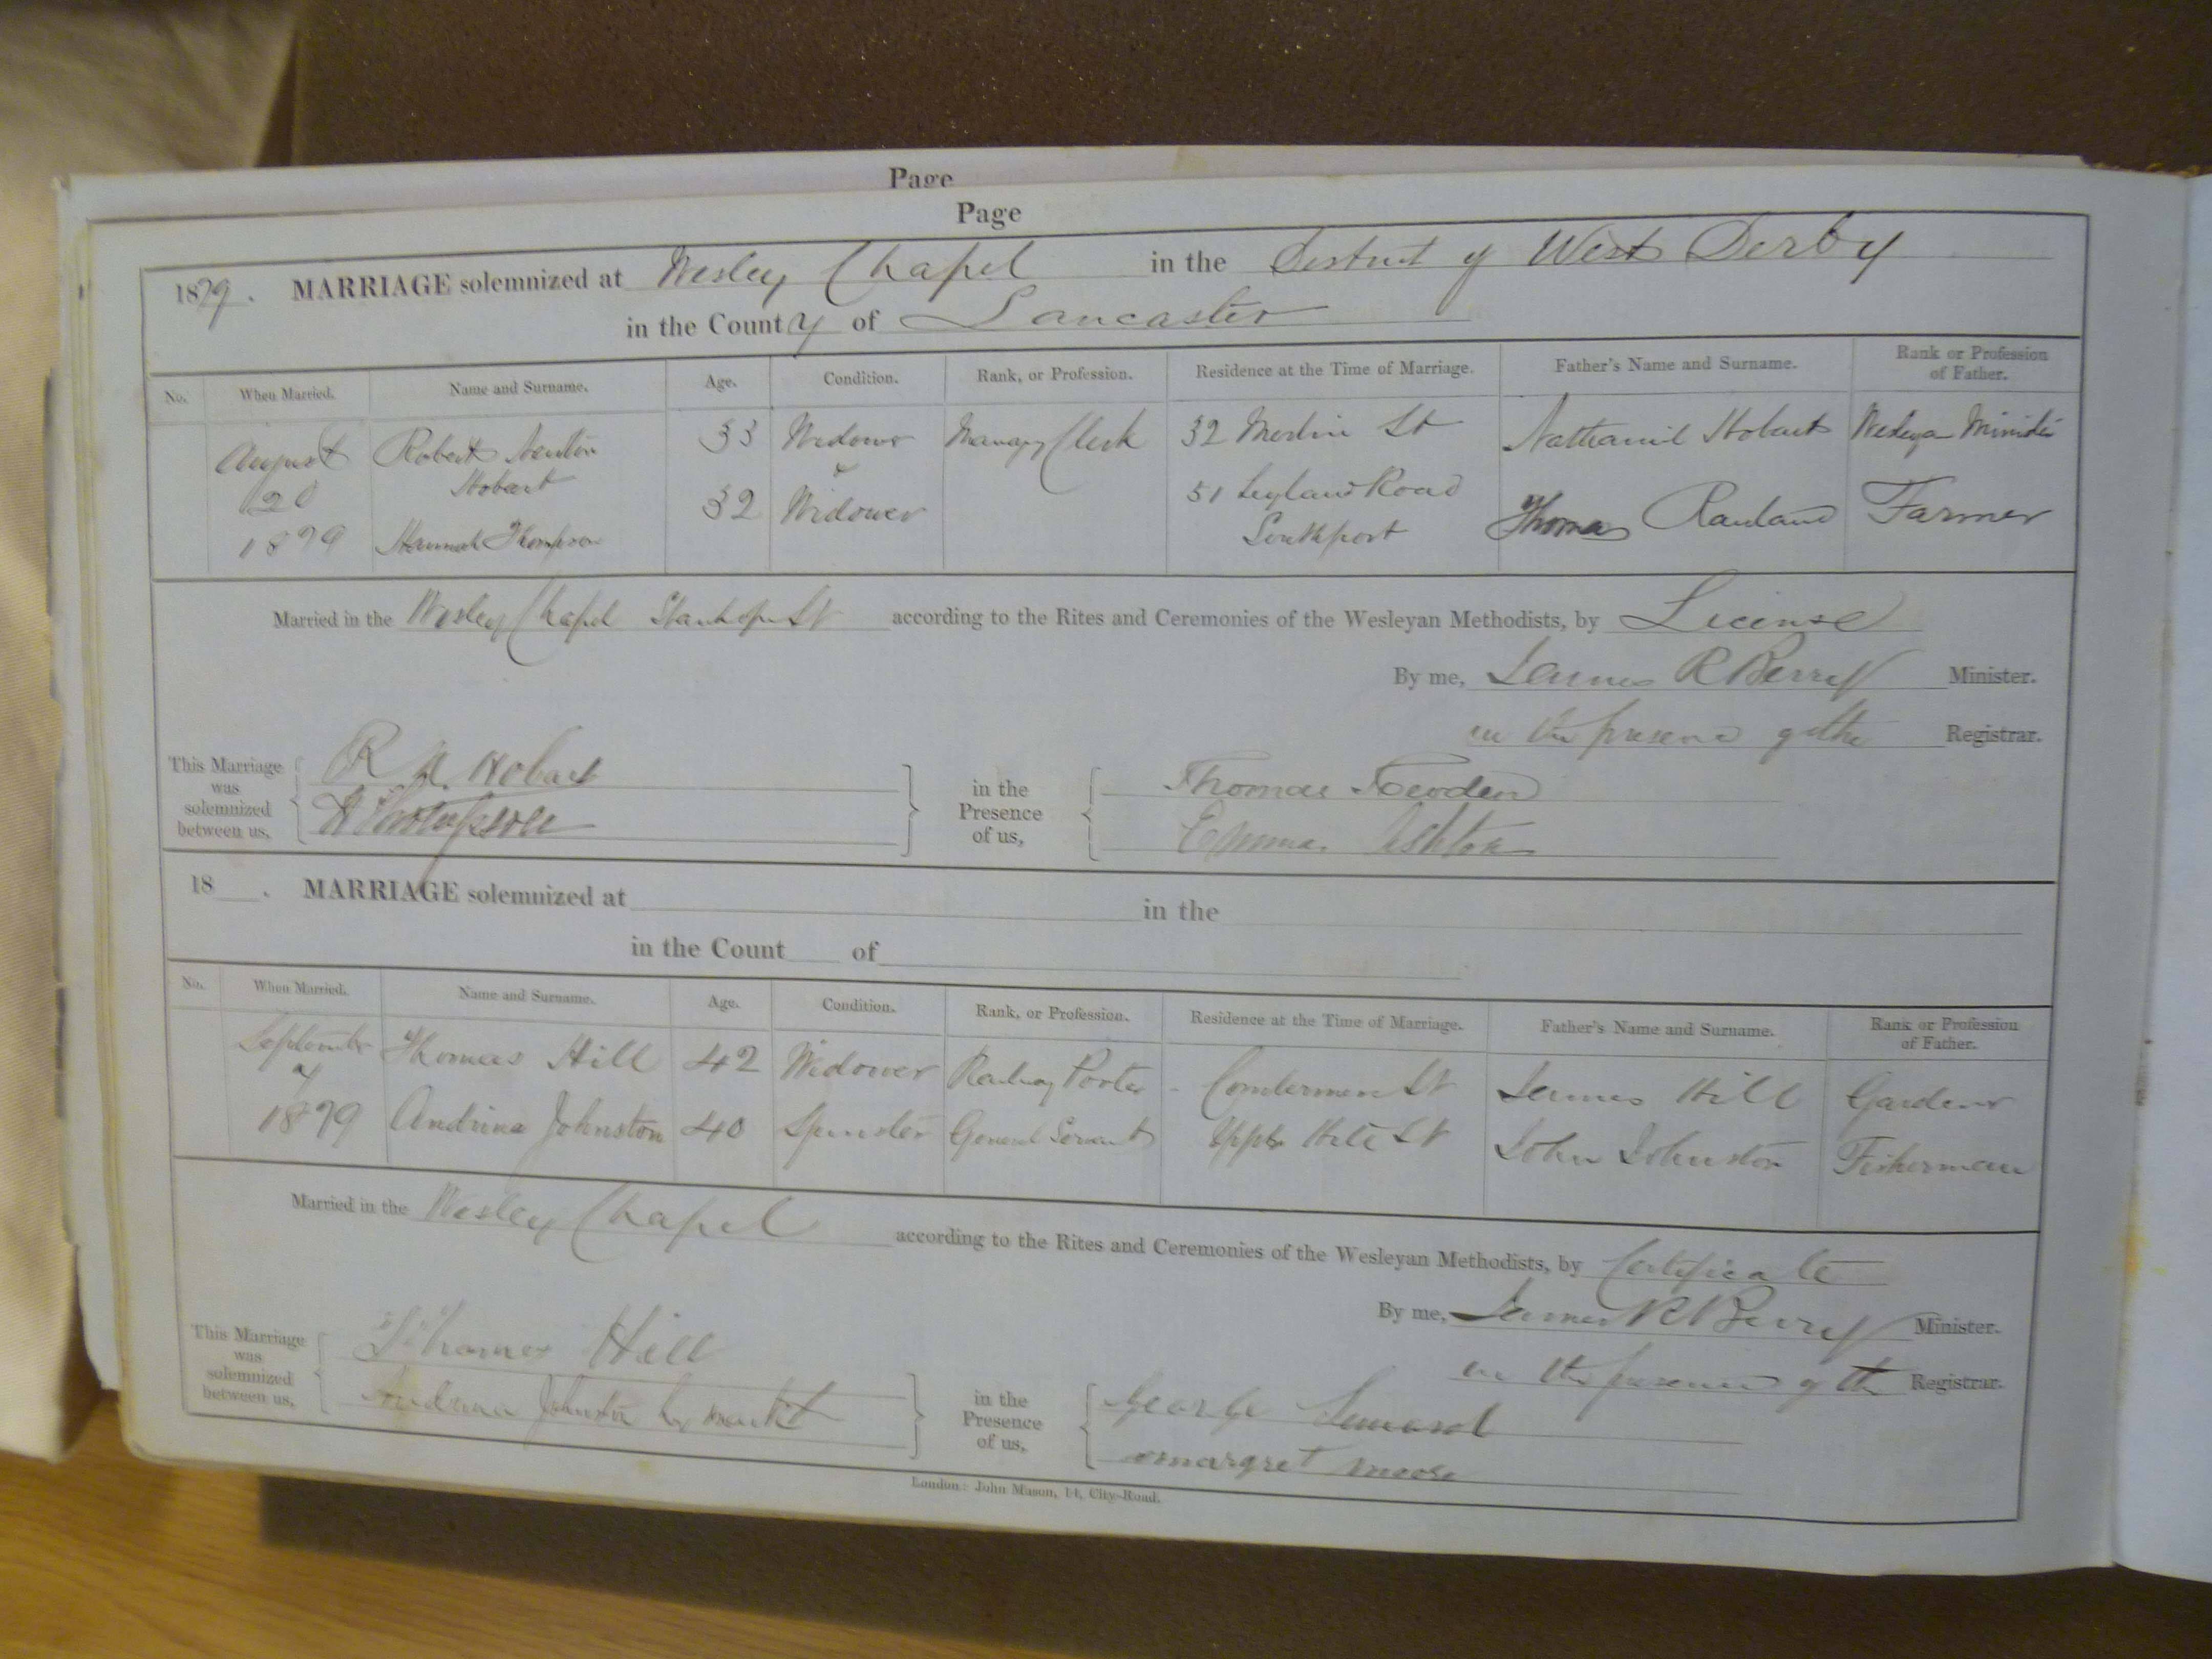 Page
Page
1879. MARRIAGE solemnized at Wesley Chapel in the District of West Derby
in the County of Lancaster
No. When Married. Name and Surname. Age. Condition. Rank, or Profession. Residence at the Time of Marriage. Father's Name and Surname. Rank or Profession of Father.
August 20 1879 Robert Newton Hobart 33 Widower Clerk 32 Merlin St Nathaniel Hobart Wesleyan Minister
Hannah Thompson 32 Widower 51 Leyland Road Southport Thomas Farmer
Married in the Wesley Chapel Stanhope St according to the Rites and Ceremonies of the Wesleyan Methodists, by License
By me, James R Berry Minister.
in the presence of the Registrar.
This Marriage was solemnized between us,
R N Hobart
H Thompson
in the Presence of us,
Thomas
Emma Ashton
18 . MARRIAGE solemnized at in the
in the Count of
No. When Married. Name and Surname. Age. Condition. Rank, or Profession. Residence at the Time of Marriage. Father's Name and Surname. Rank or Profession of Father.
September 7 1879 Thomas Hill 42 Widower Railway Porter St James Hill Gardener
Andrina Johnston 40 Spinster General Servant Upper Hill St John Johnston Fisherman
Married in the Wesley Chapel according to the Rites and Ceremonies of the Wesleyan Methodists, by Certificate
By me, James R Berry Minister.
in the presence of the Registrar.
This Marriage was solemnized between us,
Thomas Hill
Andrina Johnston
in the Presence of us,
George
margret moore
London: John Mason, 14, City-Road.